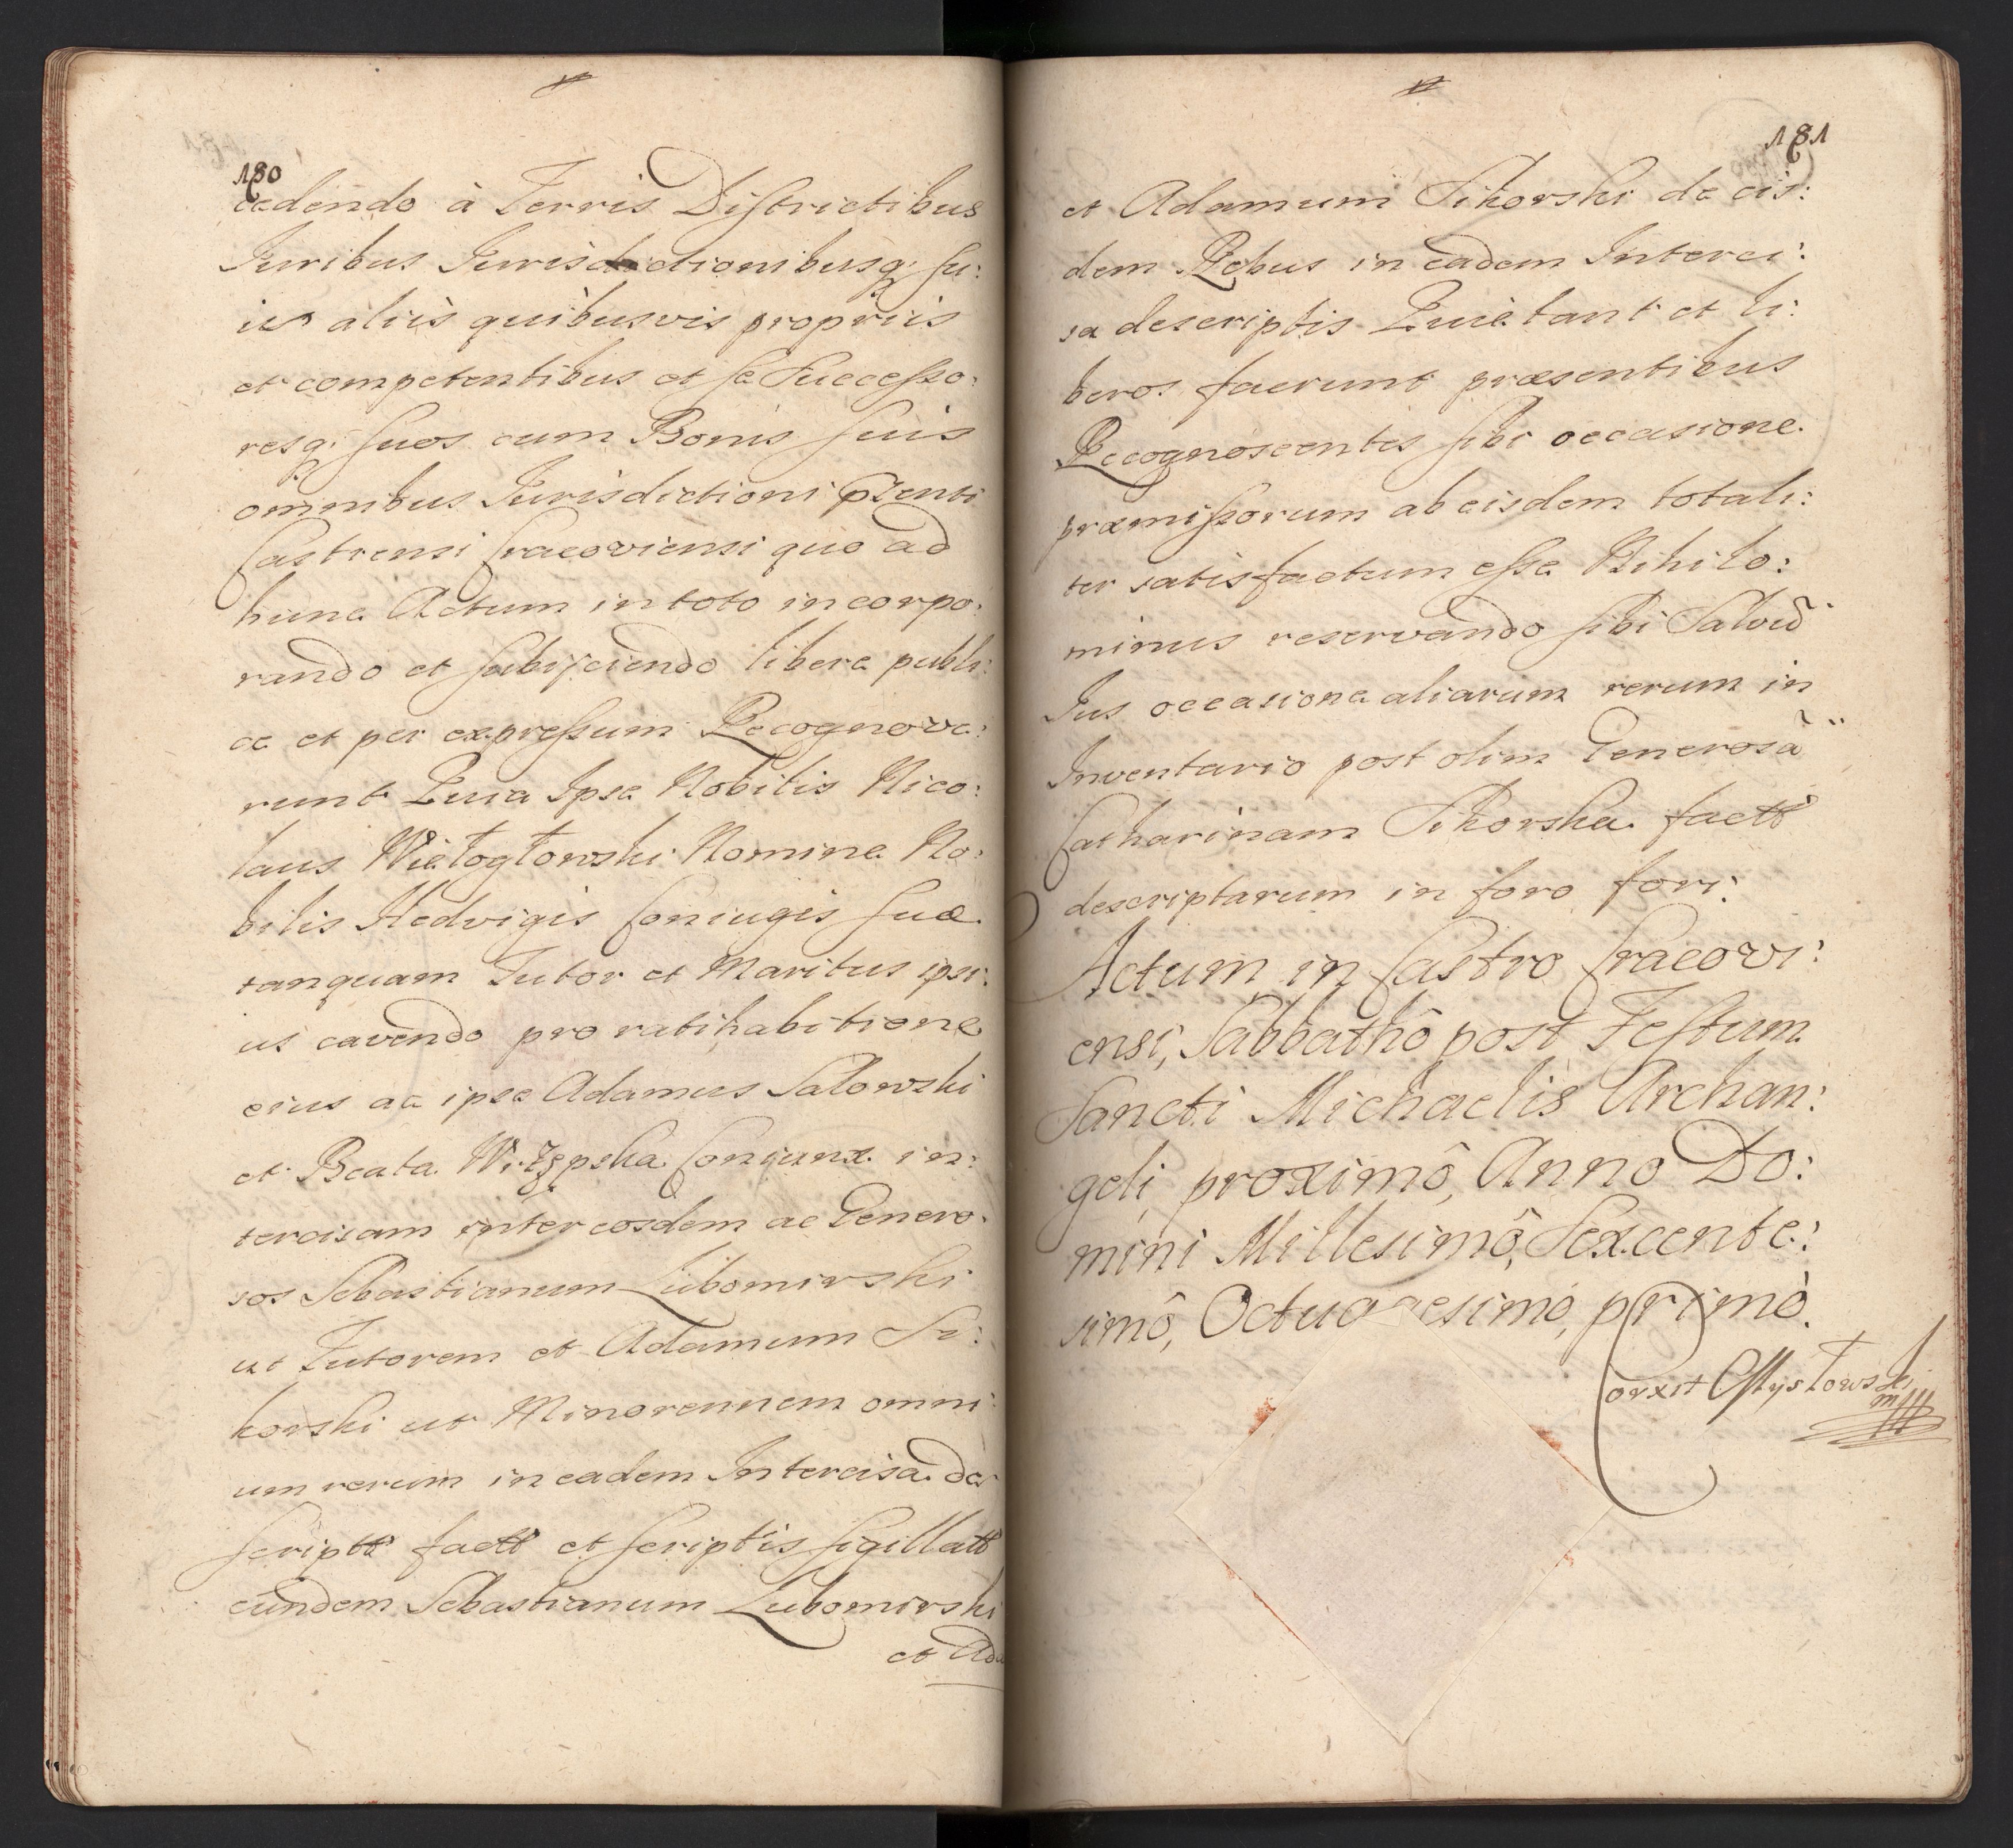 180
cedendo à Terris Districtibus
Iuribus Iurisdictionibusq; su:
is aliis quibusvis propriis
et competentibus et se Successo:
resq; suos cum Bonis suis
omnibus Iurisdictioni pñti
Castrensi Cracoviensi quo ad
hunc Actum in toto incorpo:
rando et subijciendo libere publi:
ce et per expressum Recognove:
runt Quia Ipse Nobilis Nico:
laus Wietogłowski Nomine No:
bilis Hedvigis Coniugis suæ
tanquam Tutor et Maritus ipsi:
us cavendo pro ratihabitione
eius ac ipse Adamus Sałowski
et Beata Coniunx in:
tercisam inter eosdem ac Genero:
sos Sebastianum Lubomirski
ut Tutorem et Adamum Si:
korski ut Minorennem omni:
um rerum in eadem Intercisa de
scriptt factt et scriptis sigillatt
eundem Sebastianum Lubomirski
et Ada
181
et Adamum Sikorski de eis:
dem Rebus in eadem Interci:
sa descriptis Quietant et li:
beros faciunt præsentibus
Recognoscentes sibi occasione
præmissorum ab eisdem totali:
ter satisfactum esse Nihilo:
minus reservando sibi Salvũ
Ius occasione aliarum rerum in
Inventario post olim Generosã
Catharinam Sikorska factt
descriptarum in foro fori:
Actum in Castro Cracovi:
ensi, Sabbathô post Festum
Sancti Michaelis Archan:
geli proximô, Anno Do:
mini Millesimô, Sexcente:
simô, Octuagesimo, primò.
Corxit
mp